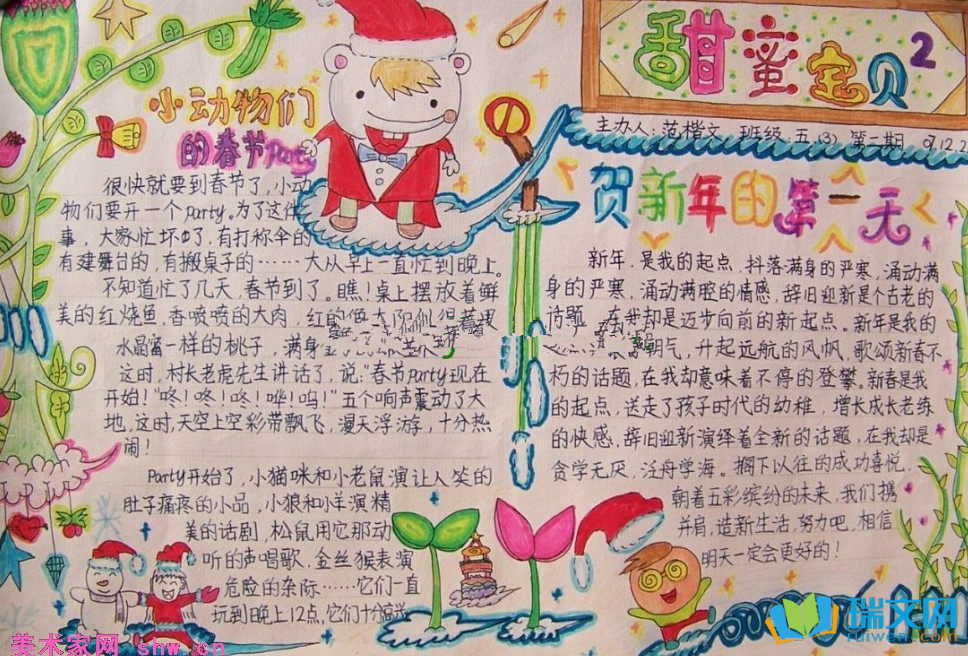 甜蜜宝贝2
主办人:范楷文 班级:五(3) 第二期 07.12.2
小动物们
的春节Party
很快就要到春节了,小动
物们要开一个party。为了这件
事,大家忙坏了,有打称伞的
有建舞台的,有搬桌子的……大从早上一直忙到晚上。
不知道忙了几天,春节到了。瞧!桌上摆放着鲜
美的红烧鱼 香喷喷的大肉,红的
水晶富一样的桃子,满身
这时,村长老虎先生讲话了,说:"春节party现在
开始!"咚!咚!咚!哗!呜!"五个响声震动了大
地,这时,天空上空彩带飘飞,漫天浮游,十分热
闹!
Party开始了,小猫咪和小老鼠演让人笑的
肚子痛疼的小品,小狼和小羊演精
美的话剧,松鼠用它那动
听的声唱歌,金丝猴表演
危险的杂际……它们一直
玩到晚上12点,它们十分高兴
贺新年的第一天
新年,是我的起点,抖落满身的严寒,涌动满
身的严寒,涌动满腔的情感,辞旧迎新是个古老的
话题,在我却是迈步向前的新起点。新年是我的
明气,升起远航的风帆,歌颂新春不
朽的话题,在我却意味着不停的登攀。新春是我
的起点,送走了孩子时代的幼稚,增长成长老练
的快感,辞旧迎新演绎着全新的话题,在我却是
贪学无厌,泛舟学海。搁下以往的成功喜悦,
朝着五彩缤纷的未来,我们携
并肩,造新生活,努力吧,相信
明天一定会更好的!
美术家网 shw.cn
瑞文网
ruiwen.com